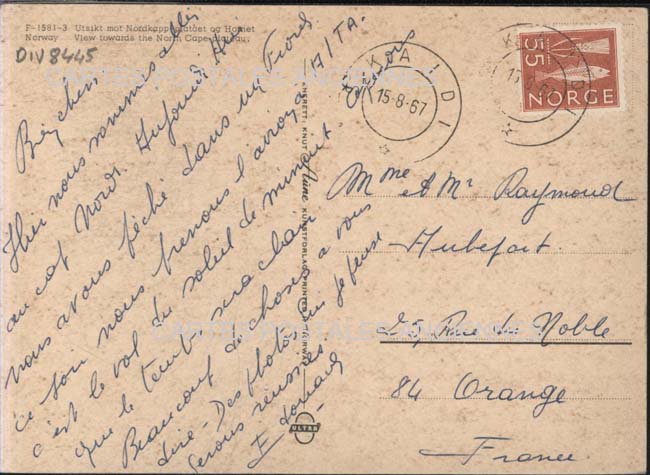 F-1581-3 Utsikt mot Nordkapp-platået og Hornet
Norway View towards the North Cape-plateau.
DIV 8445
Bien chers
Hier nous sommes allés
au cap Nord. Aujourd'hui
nous avons pêché dans un Fiord
ce soir nous prenons l'avion à ALTA.
c'est le vol du soleil de minuit
que le temps sera clair
Beaucoup de choses à vous
dire - Des photos que je pense
serons réussies.
Edouard
ENERETT: KNUT Aune KUNSTFORLAG PRINTED IN NORWAY
ULTRA
15-8-67
55
NORGE
Mme & Mr Raymond
Hubefort
25, Rue du Noble
84 Orange
France
CARTES POSTALES ANCIENNES
CARTES POSTALES ANCIENNES